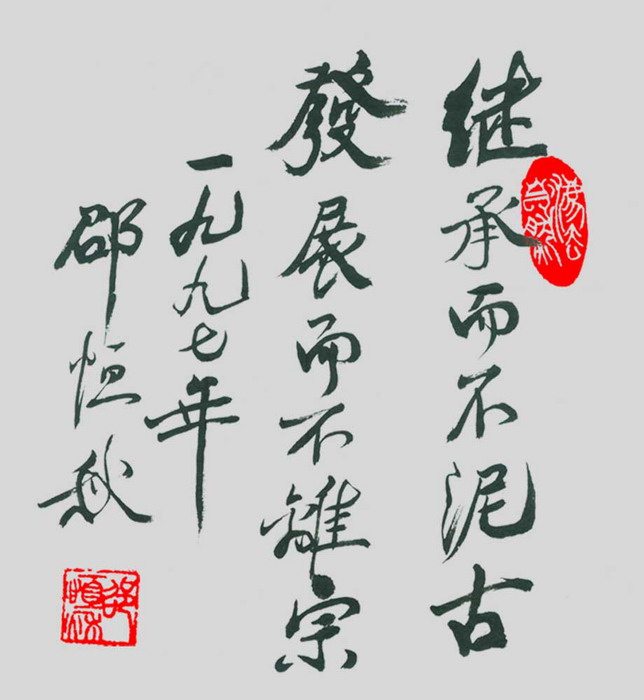 继承而不泥古
發展而不離宗
一九九七年
邵恒秋